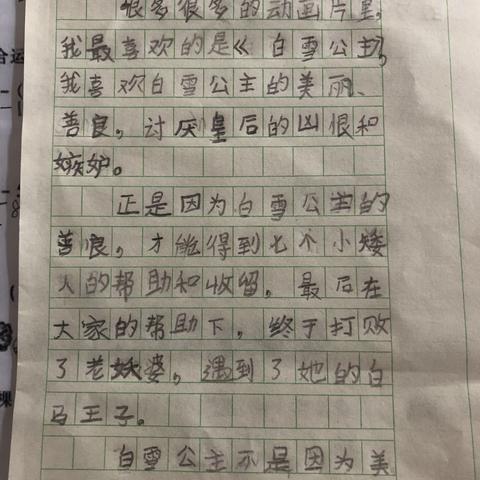 很多很多的动画片里,
我最喜欢的是《白雪公主》,
我喜欢白雪公主的美丽、
善良,讨厌皇后的凶恨和
嫉妒。
正是因为白雪公主的
善良,才能得到七个小矮
人的帮助和收留。最后在
大家的帮助下,终于打败
了老妖婆,遇到了她的白
马王子。
白雪公主不是因为美